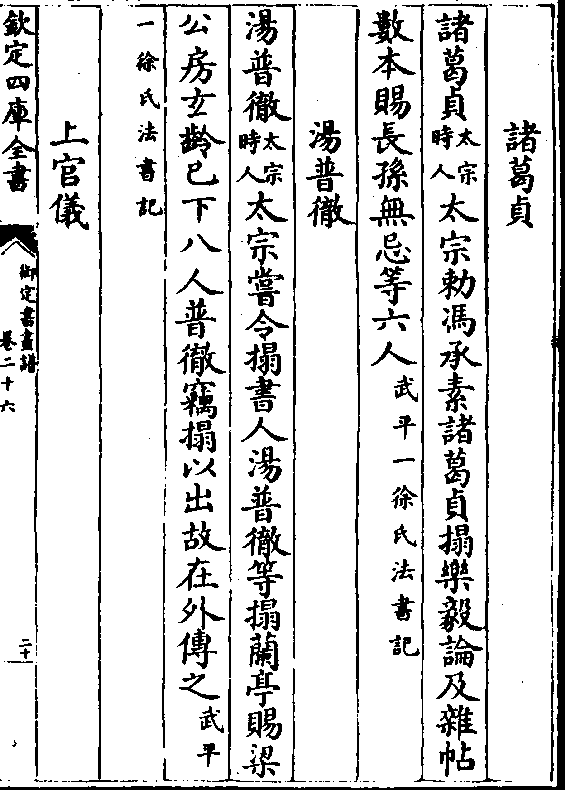 諸葛貞
諸葛貞太宗時人太宗勅馮承素諸葛貞搨樂毅論及雜帖
數本賜長孫無忌等六人武平一徐氏法書記
湯普徹
湯普徹太宗時人太宗嘗令搨書人湯普徹等搨蘭亭賜梁
公房玄齡已下八人普徹竊搨以出故在外傳之武平
一徐氏法書記
上官儀
欽定四庫全書
御定書畫譜
卷二十六
二十